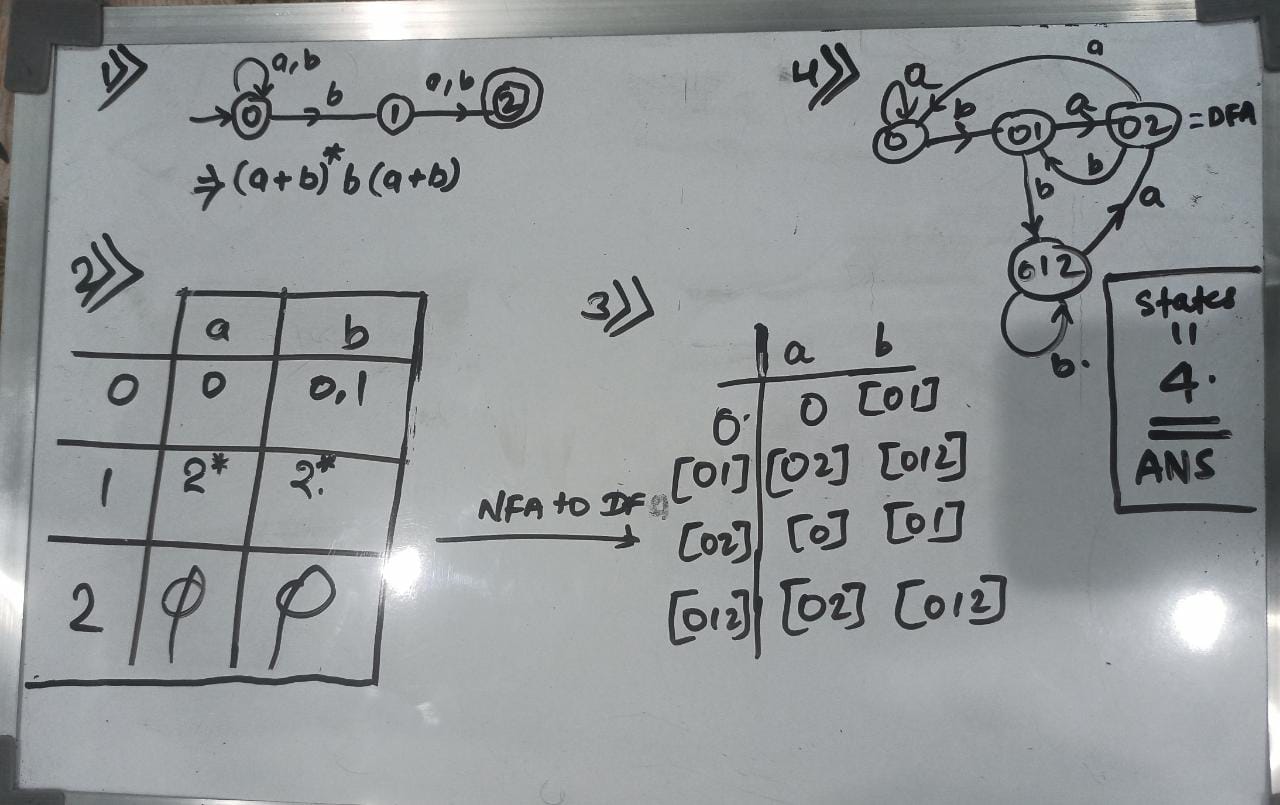 1)
a,b
b
a,b
0
1
2
⇒ (a+b)* b (a+b)
2)
a b
0 0 0,1
1 2* 2.*
2 φ φ
NFA to DFA
3)
a b
0. 0 [01]
[01] [02] [012]
[02] [0] [01]
[012] [02] [012]
4)
a
a
b
a
0
01
02
= DFA
b
b
a
012
b.
States
=
4.
ANS